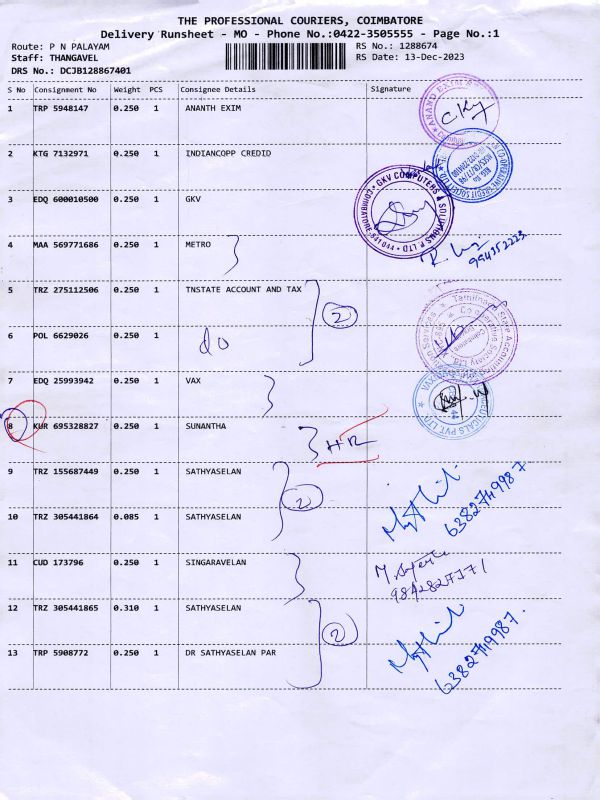 THE PROFESSIONAL COURIERS, COIMBATORE
Delivery Runsheet - MO - Phone No.:0422-3505555 - Page No.:1
Route: P N PALAYAM
RS No.: 1288674
Staff: THANGAVEL
RS Date: 13-Dec-2023
DRS No.: DCJB128867401
S No Consignment No Weight PCS Consignee Details Signature
1 TRP 5948147 0.250 1 ANANTH EXIM
2 KTG 7132971 0.250 1 INDIANCOPP CREDID
3 EDQ 600010500 0.250 1 GKV
GKV COMPUTERS & SOLUTIONS P LTD
4 MAA 569771686 0.250 1 METRO
5 TRZ 275112506 0.250 1 TNSTATE ACCOUNT AND TAX
2
6 POL 6629026 0.250 1
do
7 EDQ 25993942 0.250 1 VAX
8 KUR 695328827 0.250 1 SUNANTHA
HR
9 TRZ 155687449 0.250 1 SATHYASELAN
2
6382749987
10 TRZ 305441864 0.085 1 SATHYASELAN
11 CUD 173796 0.250 1 SINGARAVELAN
12 TRZ 305441865 0.310 1 SATHYASELAN
2
13 TRP 5908772 0.250 1 DR SATHYASELAN PAR
6382749987